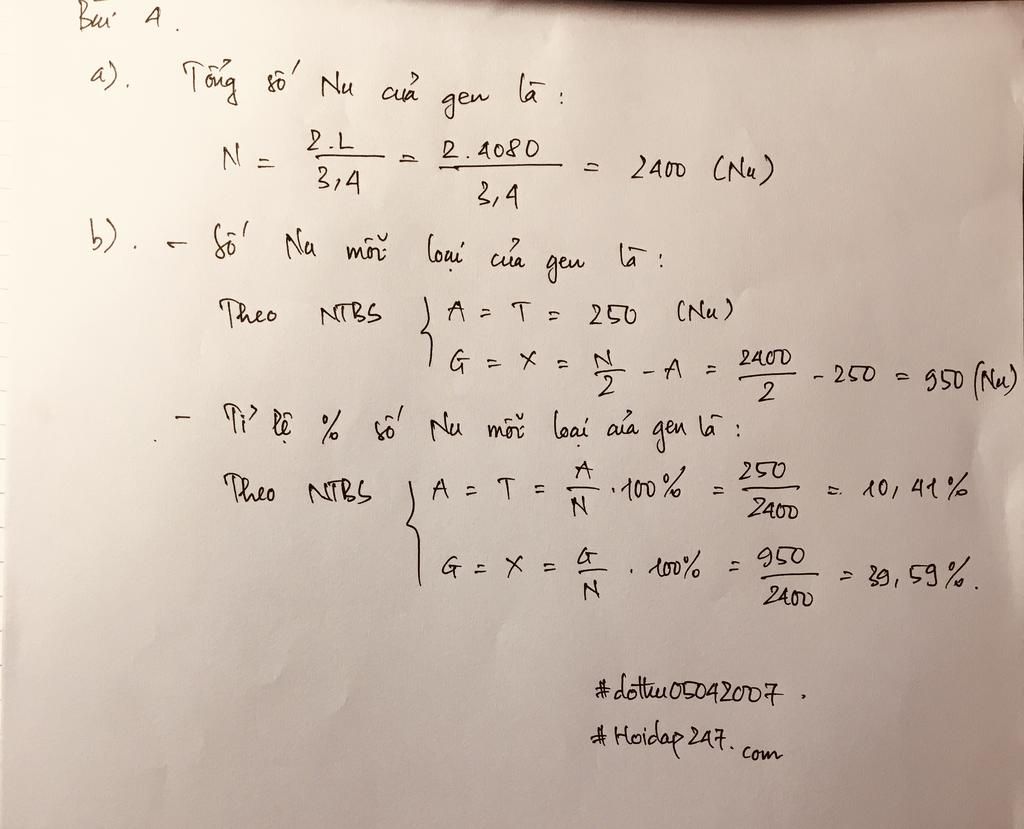 Bài 4.
a). Tổng số Nu của gen là :
N = 2.L / 3,4 = 2.4080 / 3,4 = 2400 (Nu)
b). - Số Nu mỗi loại của gen là :
Theo NTBS { A = T = 250 (Nu)
G = X = N/2 - A = 2400/2 - 250 = 950 (Nu)
- Tỉ lệ % số Nu mỗi loại của gen là :
Theo NTBS { A = T = A/N . 100% = 250/2400 = 10,41%
G = X = G/N . 100% = 950/2400 = 39,59%.
#dothu05042007.
#Hoidap247.com